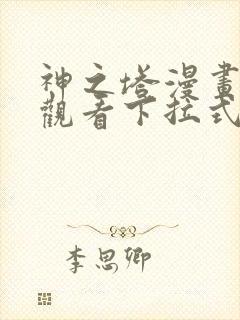 神之塔漫畫
觀看下拉式
李思卿